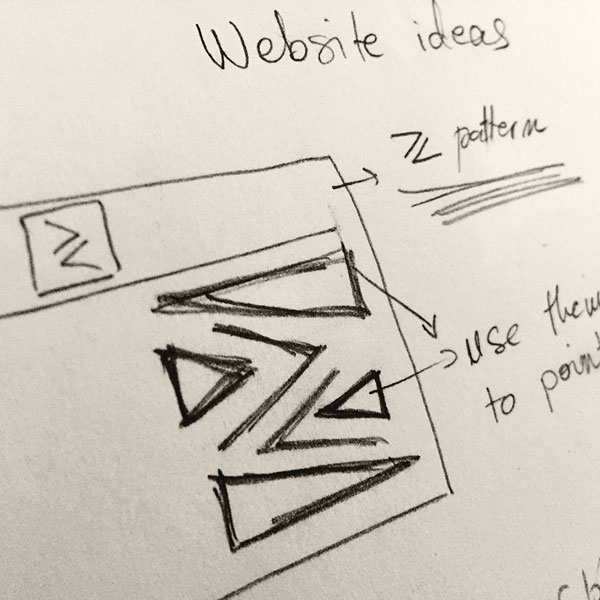 Website ideas
pattern
use them
to point